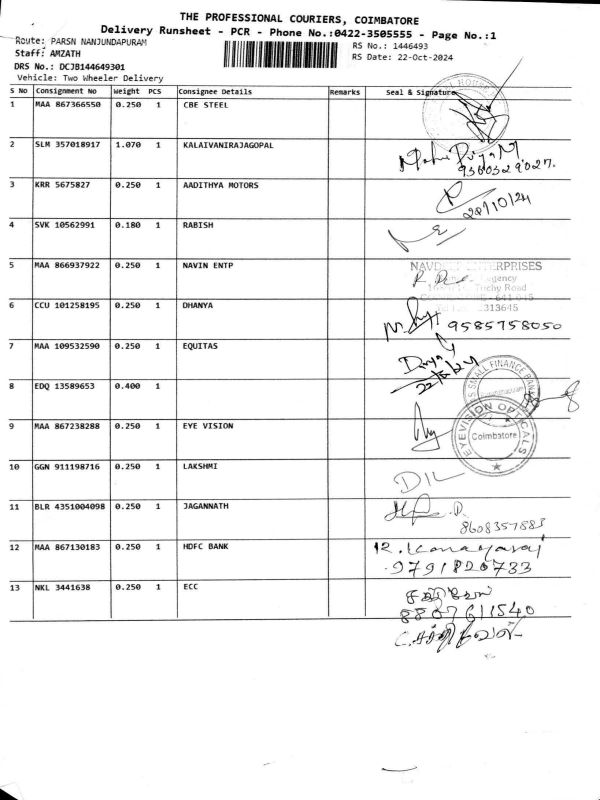 THE PROFESSIONAL COURIERS, COIMBATORE
Delivery Runsheet - PCR - Phone No.:0422-3505555 - Page No.:1
Route: PARSN NANJUNDAPURAM
RS No.: 1446493
Staff: AMZATH
RS Date: 22-Oct-2024
DRS No.: DCJB144649301
Vehicle: Two Wheeler Delivery
S No Consignment No Weight PCS Consignee Details Remarks Seal & Signature
1 MAA 867366550 0.250 1 CBE STEEL
2 SLM 357018917 1.070 1 KALAIVANIRAJAGOPAL
3 KRR 5675827 0.250 1 AADITHYA MOTORS
22/10/24
4 SVK 10562991 0.180 1 RABISH
5 MAA 866937922 0.250 1 NAVIN ENTP
ENTERPRISES
Trichy Road
313645
6 CCU 101258195 0.250 1 DHANYA
9585758050
7 MAA 109532590 0.250 1 EQUITAS
SMALL FINANCE BANK
8 EDQ 13589653 0.400 1
9 MAA 867238288 0.250 1 EYE VISION
EYEVISION OPTICALS
Coimbatore
10 GGN 911198716 0.250 1 LAKSHMI
11 BLR 4351004098 0.250 1 JAGANNATH
8608357883
12 MAA 867130183 0.250 1 HDFC BANK
9791820733
13 NKL 3441638 0.250 1 ECC
சக்திவேல்
8807611540
C. சக்திவேல்